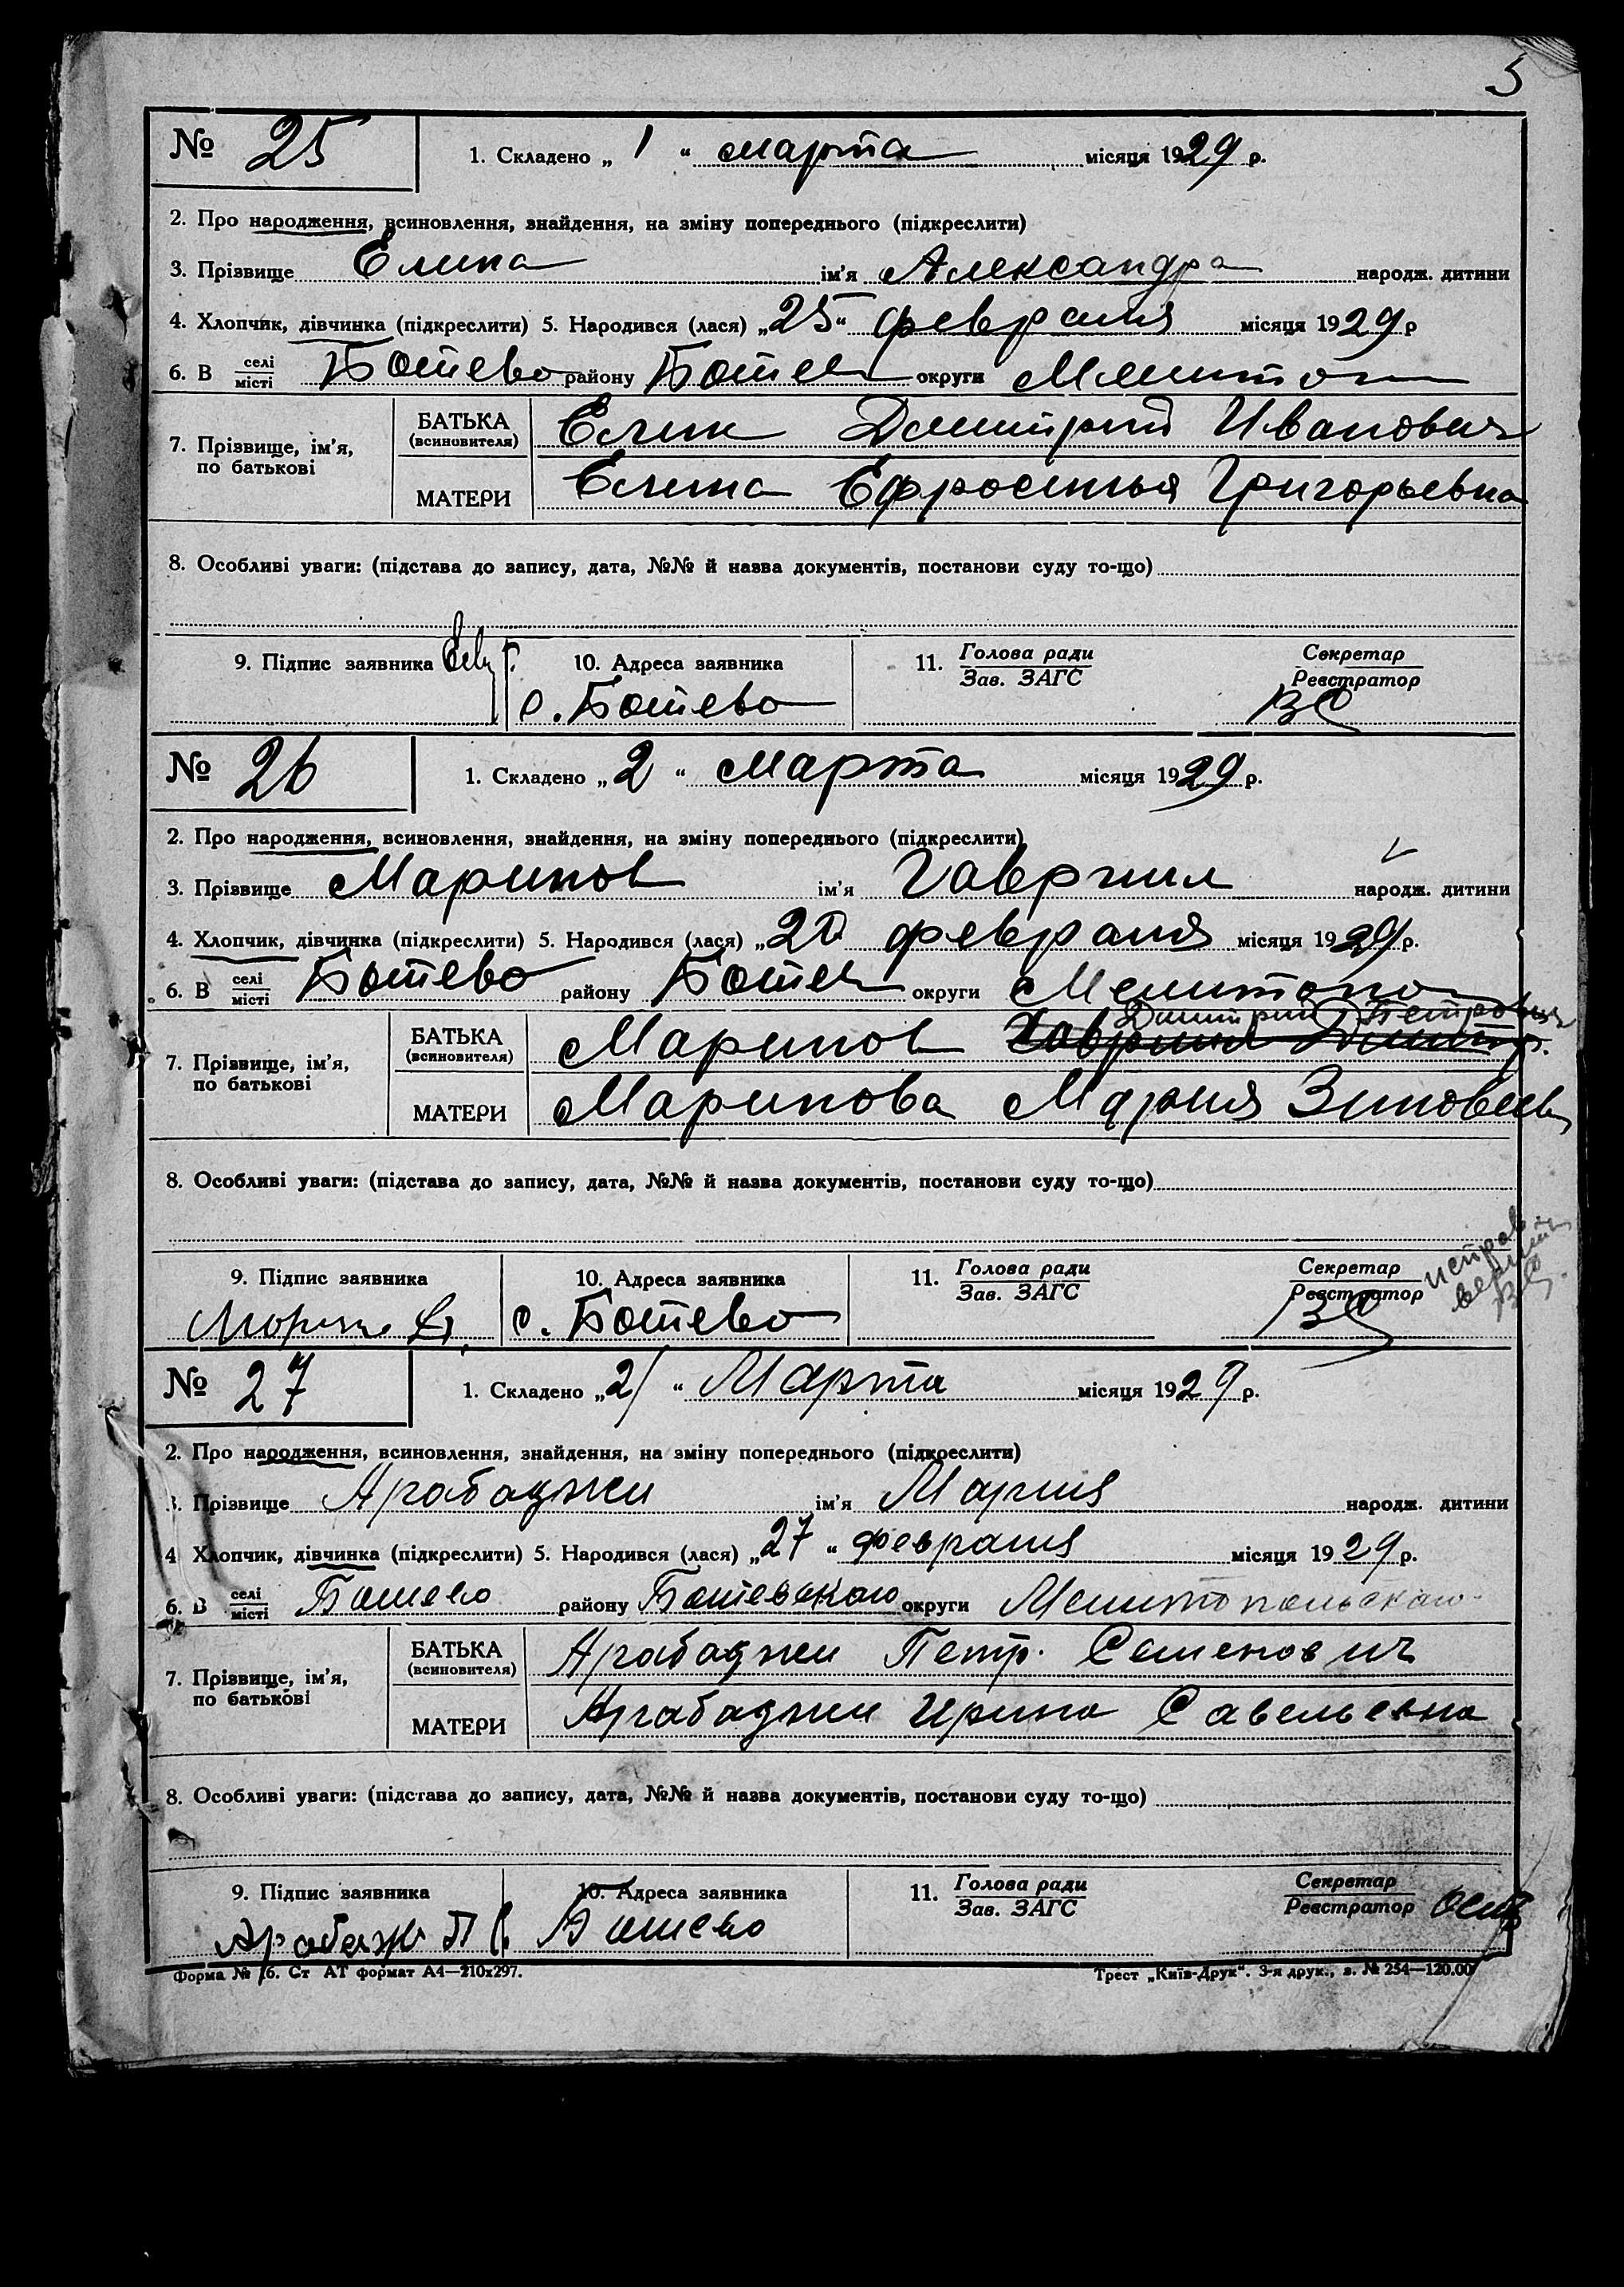 5
№ 25 1. Складено „ 1 “ марта місяця 1929 р.
2. Про народження, всиновлення, знайдення, на зміну попереднього (підкреслити)
3. Прізвище Елина ім'я Александра народж. дитини
4. Хлопчик, дівчинка (підкреслити) 5. Народився (лася) „25“ февраля місяця 1929 р
6. В селі місті Ботево району Ботев округи Мелитоп
7. Прізвище, ім'я, по батькові
БАТЬКА (всиновителя) Елин Дмитрий Иванович
МАТЕРИ Елина Ефросинья Григорьевна
8. Особливі уваги: (підстава до запису, дата, №№ й назва документів, постанови суду то-що)
9. Підпис заявника 10. Адреса заявника 11. Голова ради Зав. ЗАГС Секретар Реєстратор
с. Ботево
№ 26 1. Складено „ 2 “ марта місяця 1929 р.
2. Про народження, всиновлення, знайдення, на зміну попереднього (підкреслити)
3. Прізвище Маринов ім'я Гавриил народж. дитини
4. Хлопчик, дівчинка (підкреслити) 5. Народився (лася) февраля місяця 1929 р.
6. В селі місті Ботево району Ботев округи Мелитопо
Дмитрий Петрович
7. Прізвище, ім'я, по батькові
БАТЬКА (всиновителя) Маринов Гавриил Дмитр.
МАТЕРИ Маринова Мария Зиновеев
8. Особливі уваги: (підстава до запису, дата, №№ й назва документів, постанови суду то-що)
9. Підпис заявника 10. Адреса заявника 11. Голова ради Зав. ЗАГС Секретар Реєстратор
с. Ботево
№ 27 1. Складено „2/ “ Марта місяця 1929 р.
2. Про народження, всиновлення, знайдення, на зміну попереднього (підкреслити)
3. Прізвище Арабаджи ім'я Мария народж. дитини
4 Хлопчик, дівчинка (підкреслити) 5. Народився (лася) „27 “ февраля місяця 1929 р.
6. В селі місті Ботево району Ботевского округи Мелитопольского
7. Прізвище, ім'я, по батькові
БАТЬКА (всиновителя) Арабаджи Петр. Семенович
МАТЕРИ Арабаджи Ирина Савельевна
8. Особливі уваги: (підстава до запису, дата, №№ й назва документів, постанови суду то-що)
9. Підпис заявника 10. Адреса заявника 11. Голова ради Зав. ЗАГС Секретар Реєстратор
Ботево
Форма № 16. Ст АТ формат А4—210х297. Трест „Київ-Друк“. 3-я друк., з. № 254—120.00